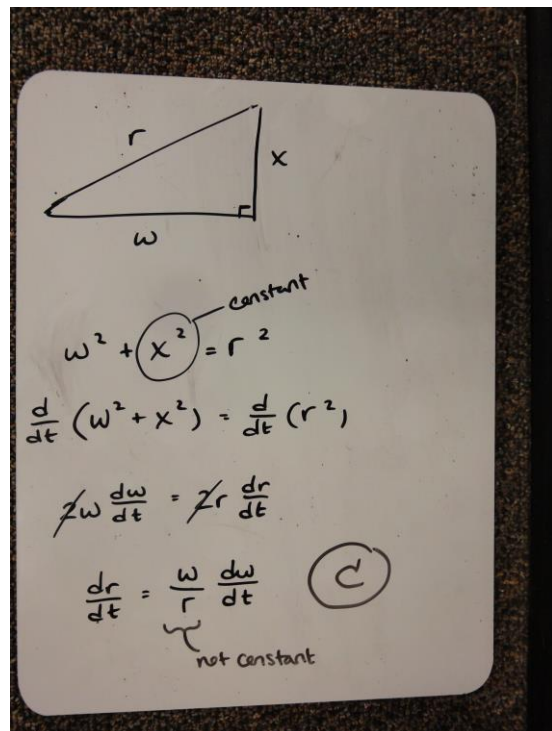 r
x
w
constant
w² + x² = r²
d/dt (w² + x²) = d/dt (r²)
2w dw/dt = 2r dr/dt
dr/dt = w/r dw/dt
C
not constant